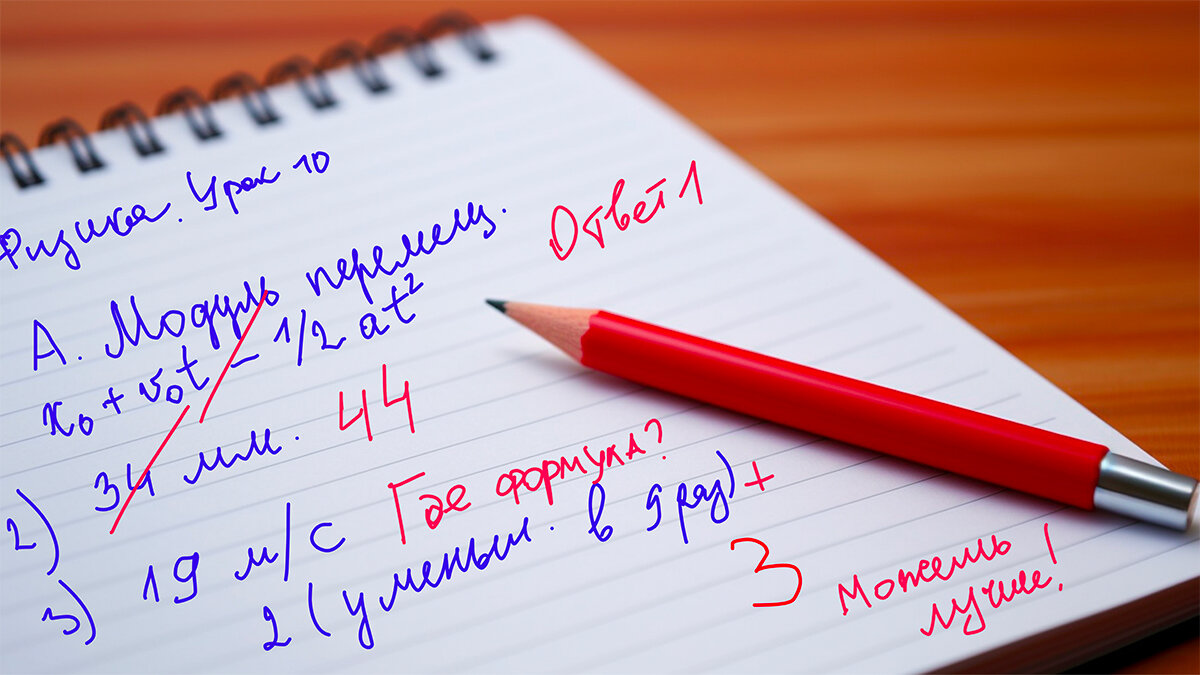 Физика. Урок 10
А. Модуль перемещ. Ответ 1
x₀ + v₀t – 1/2 at²
2) 34 мм. 44
3) 19 м/с Где формула?
2 (уменьш. в 9 раз) +
3 Можешь
лучше!